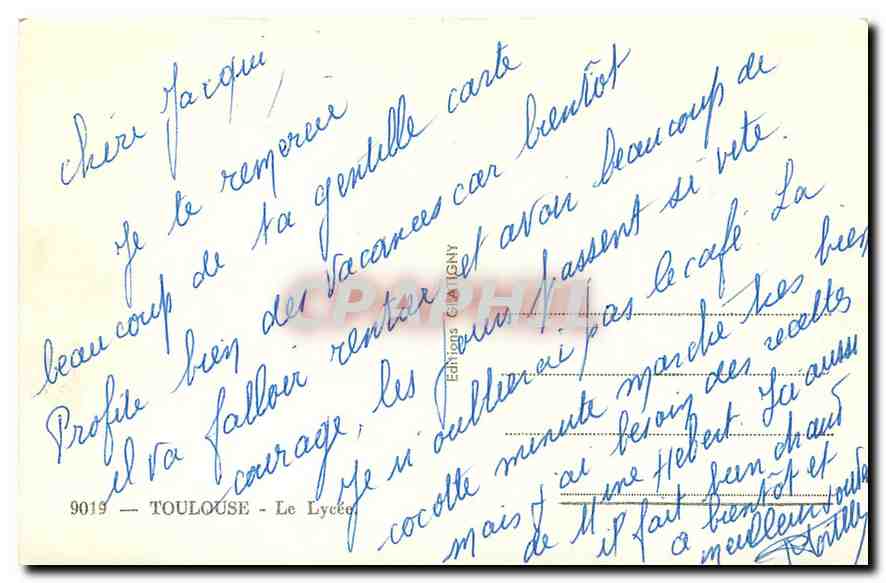 Chère Jacqui,
Je te remercie
beaucoup de ta gentille carte
Profite bien des vacances car bientôt
il va falloir rentrer et avoir beaucoup de
courage, les jours passent si vite.
Je n'oublierai pas le café La
cocotte minute marche très bien
mais j'ai besoin des recettes
de Mme Hebert. Ici aussi
il fait bien chaud
a bientôt et
meilleur
CPAPHIL
Editions GLATIGNY
9019 — TOULOUSE - Le Lycée.